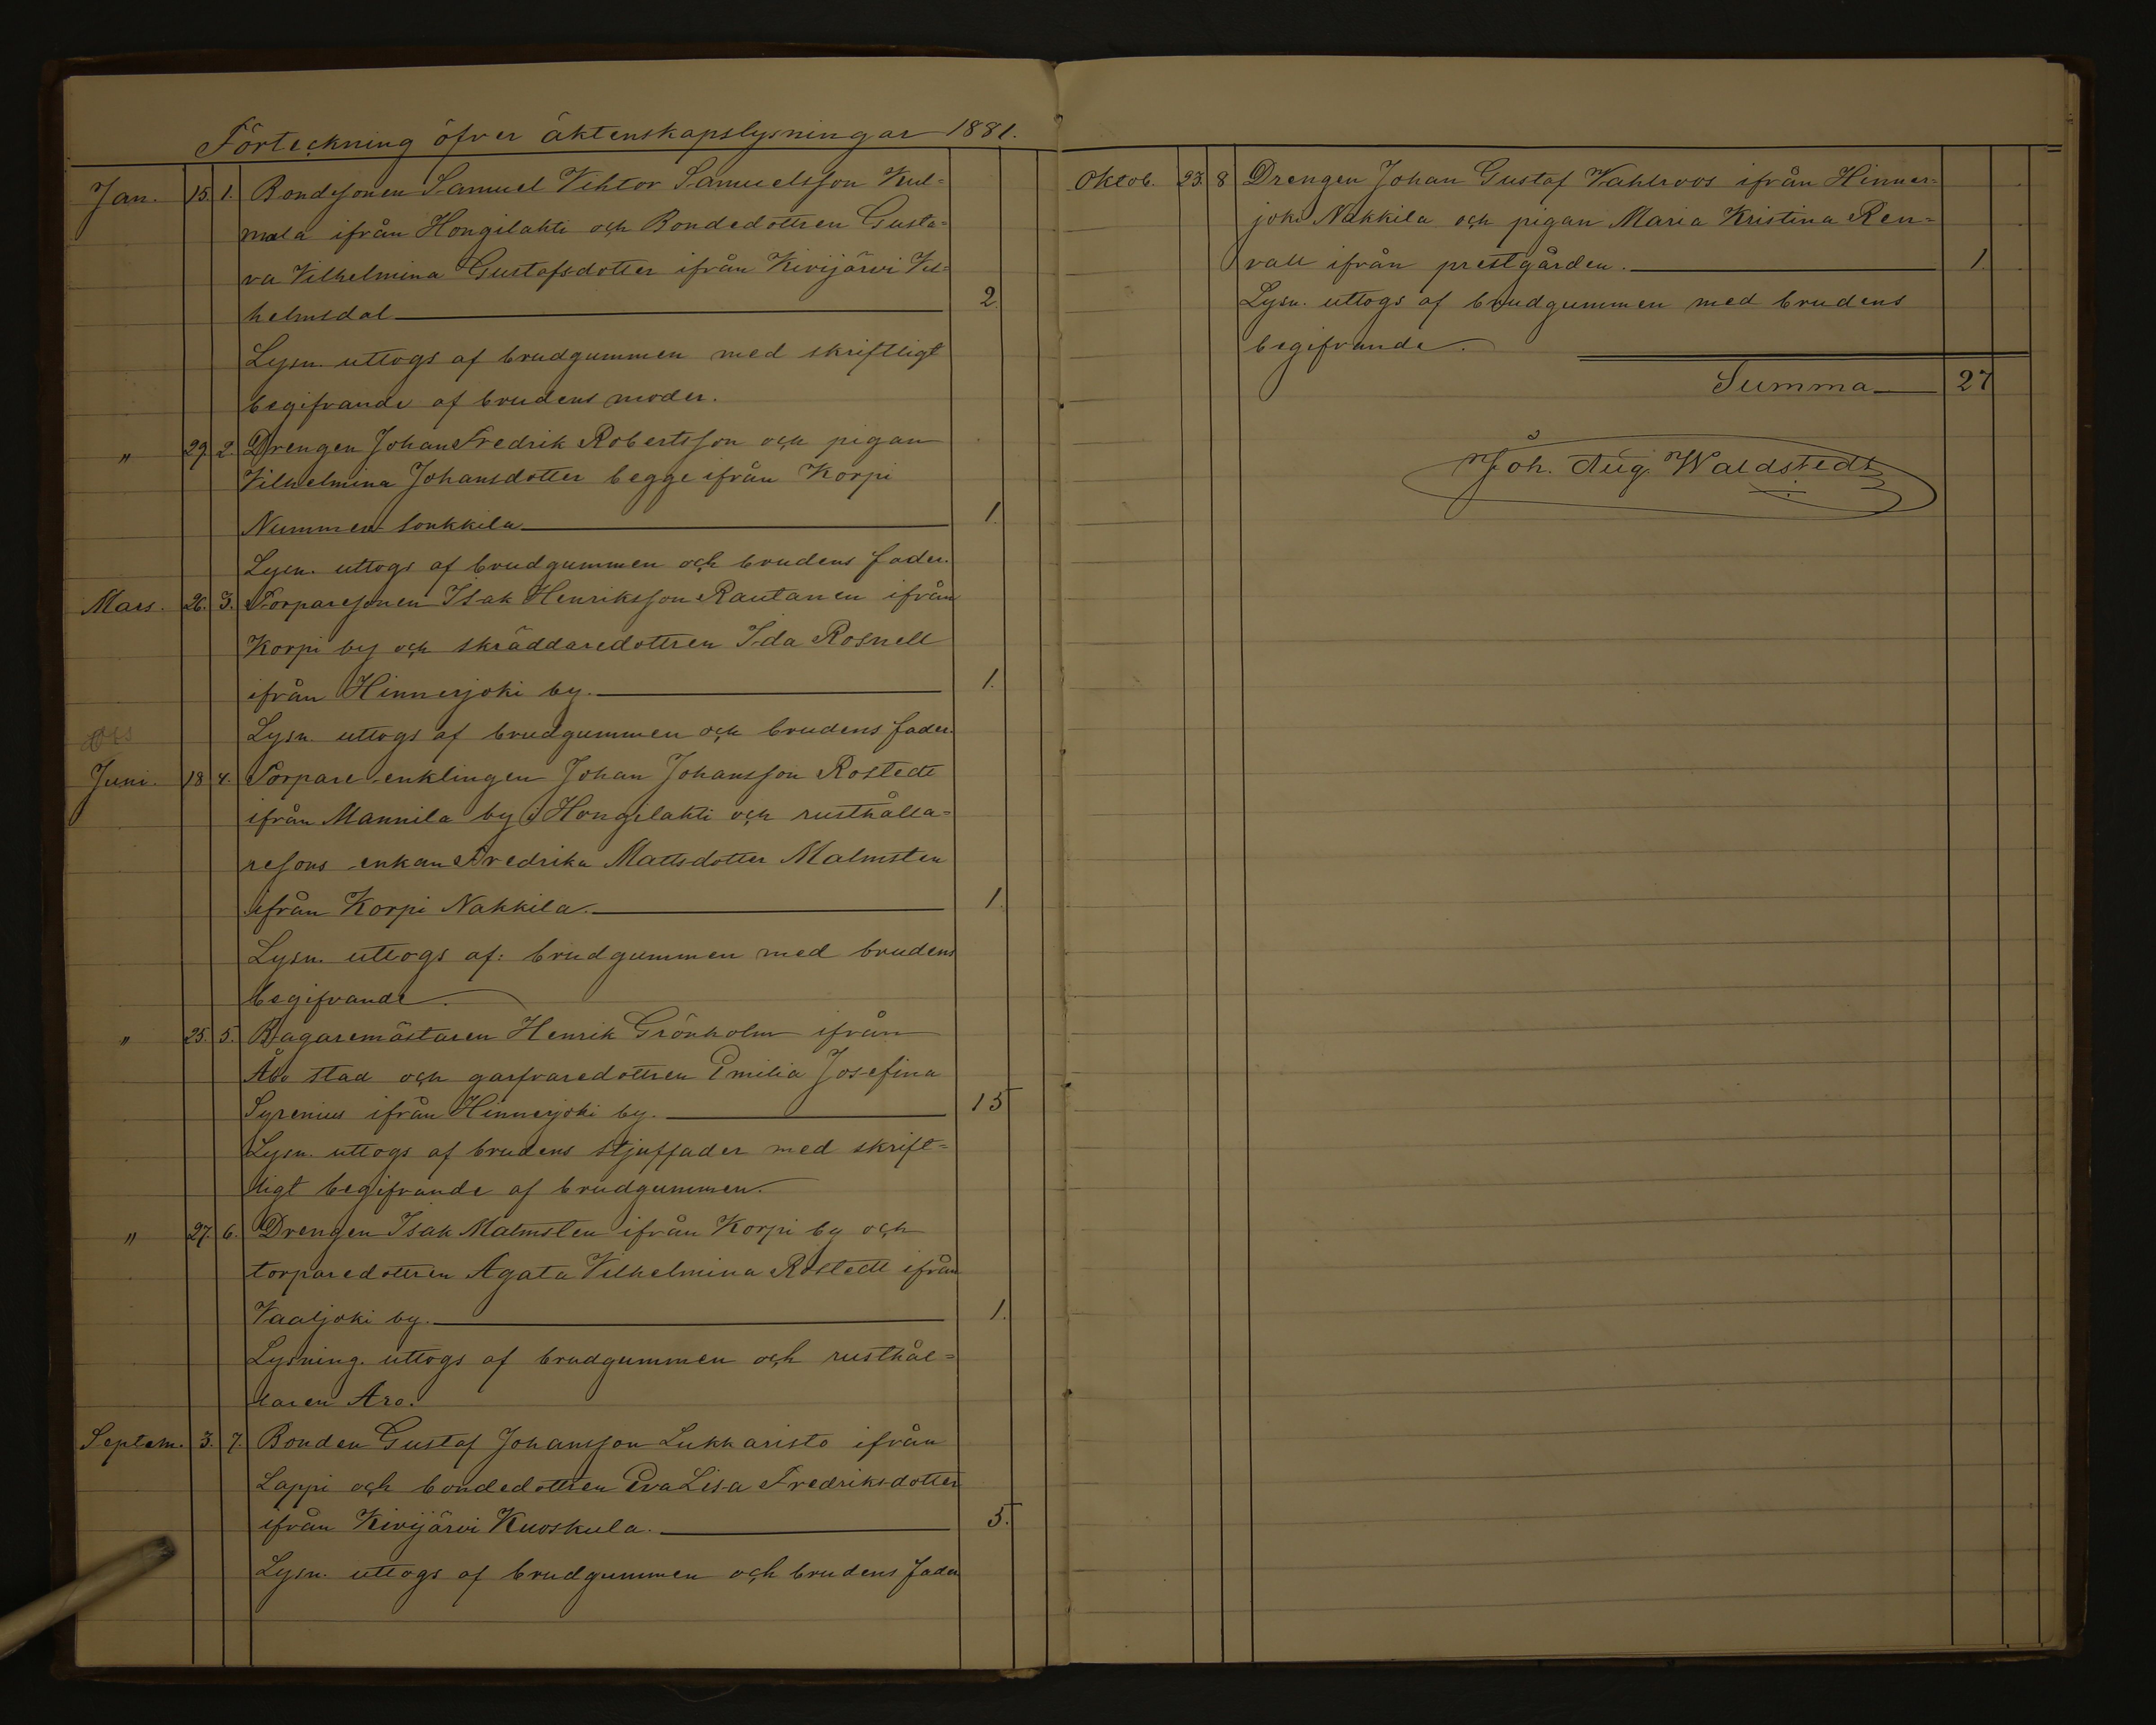 Förteckning öfver äktenskapslysningar 1881.
Jan. 15. 1. Bondesonen Samuel Viktor Samuelsson Kul=
mala ifrån Hongilahti och Bondedottren Gusta=
va Vilhelmina Gustafsdotter ifrån Kivijärvi Vil=
helmsdal 2.
Lysn. uttogs af brudgummen med skriftligt
begifvande af brudens moder.
" 29. 2. Drengen Johan Fredrik Robertsson och pigan
Vilhelmina Johansdotter begge ifrån Korpi
Nummen 1.
Lysn. uttogs af brudgummen och brudens fader.
Mars. 26. 3. Torparesonen Isak Henriksson Rautanen ifrån
Korpi by och skräddaredottren Ida Rosnell
ifrån Hinnerjoki by. 1.
Lysn. uttogs af brudgummen och brudens fader.
Juni. 18 4. Torpare enklingen Johan Johansson Rostedt
ifrån Mannila by i Hongilahti och rusthålla=
resons enkan Fredrika Mattsdotter Malmsten
ifrån Korpi Nakkila. 1.
Lysn. uttogs af: brudgummen med brudens
begifvande.
" 25. 5. Bagaremästaren Henrik Grönholm ifrån
Åbo stad och garfvaredottren Emilia Josefina
Syrenius ifrån Hinnerjoki by. 15
Lysn. uttogs af brudens stjuffader med skrift=
ligt begifvande af brudgummen.
" 27. 6. Drengen Isak Malmsten ifrån Korpi by och
torparedottren Agata Vilhelmina Rostedt ifrån
Vaaljoki by. 1.
Lysning. uttogs af brudgummen och rusthål=
laren Aro.
Septem. 3. 7. Bonden Gustaf Johansson Lukkaristo ifrån
Lappi och bondedottren Eva Lisa Fredriksdotter
ifrån Kivijärvi Kuoskula. 5.
Lysn. uttogs af brudgummen och brudens fader
Oktob. 23. 8 Drengen Johan Gustaf Wahlroos ifrån Hinner=
joki Nakkila och pigan Maria Kristina Ren=
vall ifrån prestgården. 1.
Lysn. uttogs af brudgummen med brudens
begifvande.
Summa 27
Joh. Aug. Waldstedt